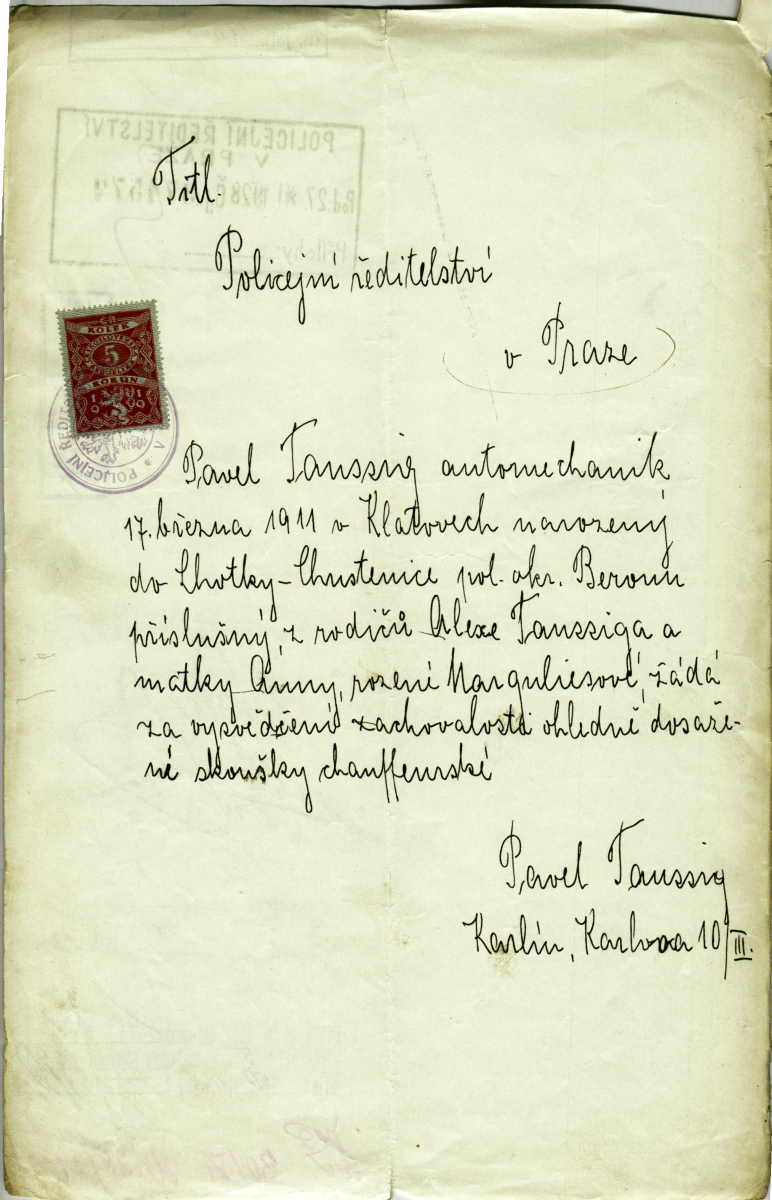 Titl.
Policejní ředitelství
v Praze
KOLEK
5
KORUN
1919
POLICEJNÍ ŘEDIT
V
Pavel Taussig automechanik
17. března 1911 v Klatovech narozený
do Lhotky-Chustenice pol. okr. Beroun
příslušný, z rodičů Alexe Taussiga a
matky Anny, rozené Marguliesové, žádá
za vysvědčení zachovalosti ohledně dosaže-
né skoušky chauffeurské
Pavel Taussig
Karlín, Karlova 10/III.